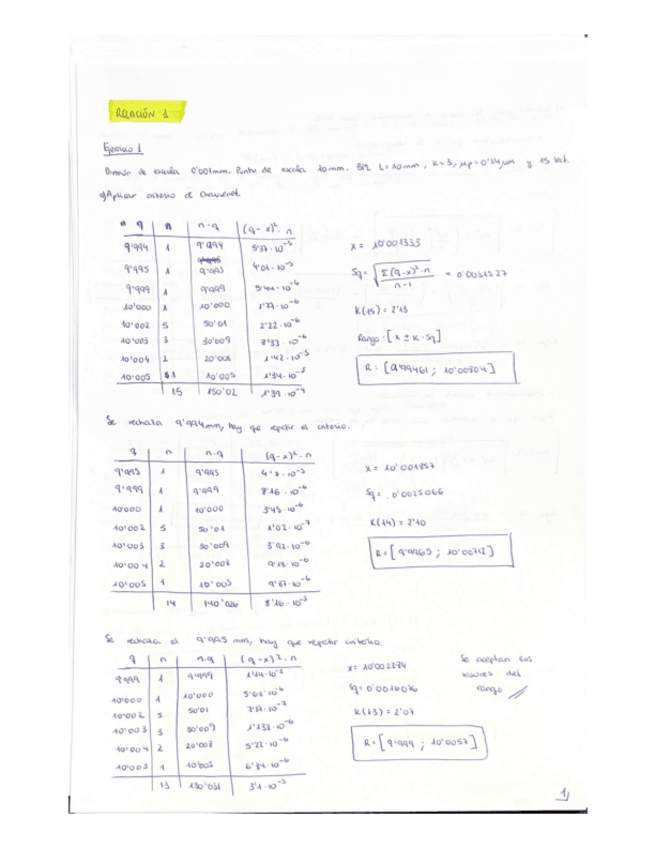 RELACIÓN 1
Ejercicio 1
División de escala 0'001mm. Punto de escala 10mm. BPL L=10mm, K=3, 15
a) Aplicar criterio de Chauvenet.
q n n·q (q-x)²·n
9'994 1 9'994 5'37·10⁻⁵
9'995 1 9'995 4'01·10⁻⁵
9'999 1 9'999 5'44·10⁻⁶
10'000 1 10'000 1'77·10⁻⁶
10'002 5 50'01 2'22·10⁻⁶
10'003 3 30'009 8'33·10⁻⁶
10'004 2 20'008 1'42·10⁻⁵
10'005 1 10'005 1'34·10⁻⁵
15 150'02 1'39·10⁻⁴
x = 10'001333
Sq = √(Σ(q-x)²·n / n-1) = 0'0031527
K(15) = 2'13
Rango: [x ± K·Sq]
R: [9'99461 ; 10'00804]
Se rechaza 9'994mm, hay que repetir el criterio.
q n n·q (q-x)²·n
9'995 1 9'995 4'7·10⁻⁵
9'999 1 9'999 8'16·10⁻⁶
10'000 1 10'000 3'45·10⁻⁶
10'002 5 50'01 1'02·10⁻⁷
10'003 3 30'009 3'92·10⁻⁶
10'004 2 20'008 9'18·10⁻⁶
10'005 1 10'005 9'87·10⁻⁶
14 140'026 8'16·10⁻⁵
x = 10'001857
Sq = 0'0025066
K(14) = 2'10
R = [9'9965 ; 10'00712]
Se rechaza el 9'995 mm, hay que repetir criterio.
q n n·q (q-x)²·n
9'999 1 9'999 1'14·10⁻⁵
10'000 1 10'000 5'67·10⁻⁶
10'002 5 50'01
10'003 3 30'009
10'004 2 20'008 5'22·10⁻⁶
1 10'005
13 130'031 3'1·10⁻⁵
x = 10'002384
Sq = 0'0016076
K(13) = 2'07
R = [9'999 ; 10'0057]
Se aceptan los
valores del
rango
1